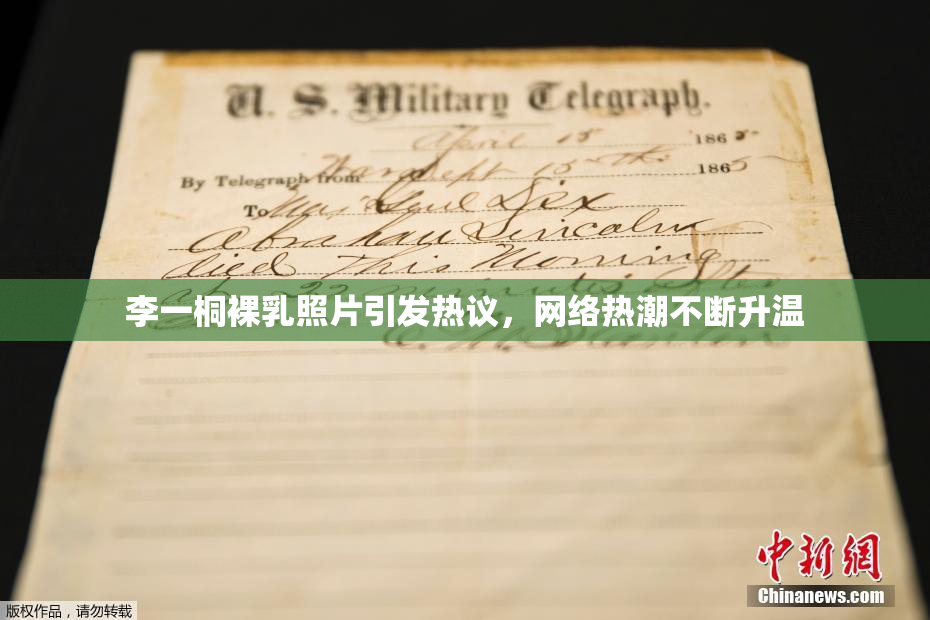 U. S. Military Telegraph.
April 15 1865
By Telegraph from War Dept 15th 1865
To Maj Genl Dix
Abraham Lincoln
died This Morning
at 22 minutes after
李一桐裸乳照片引发热议，网络热潮不断升温
E. M. Stanton
中新網
Chinanews.com
版权作品，请勿转载